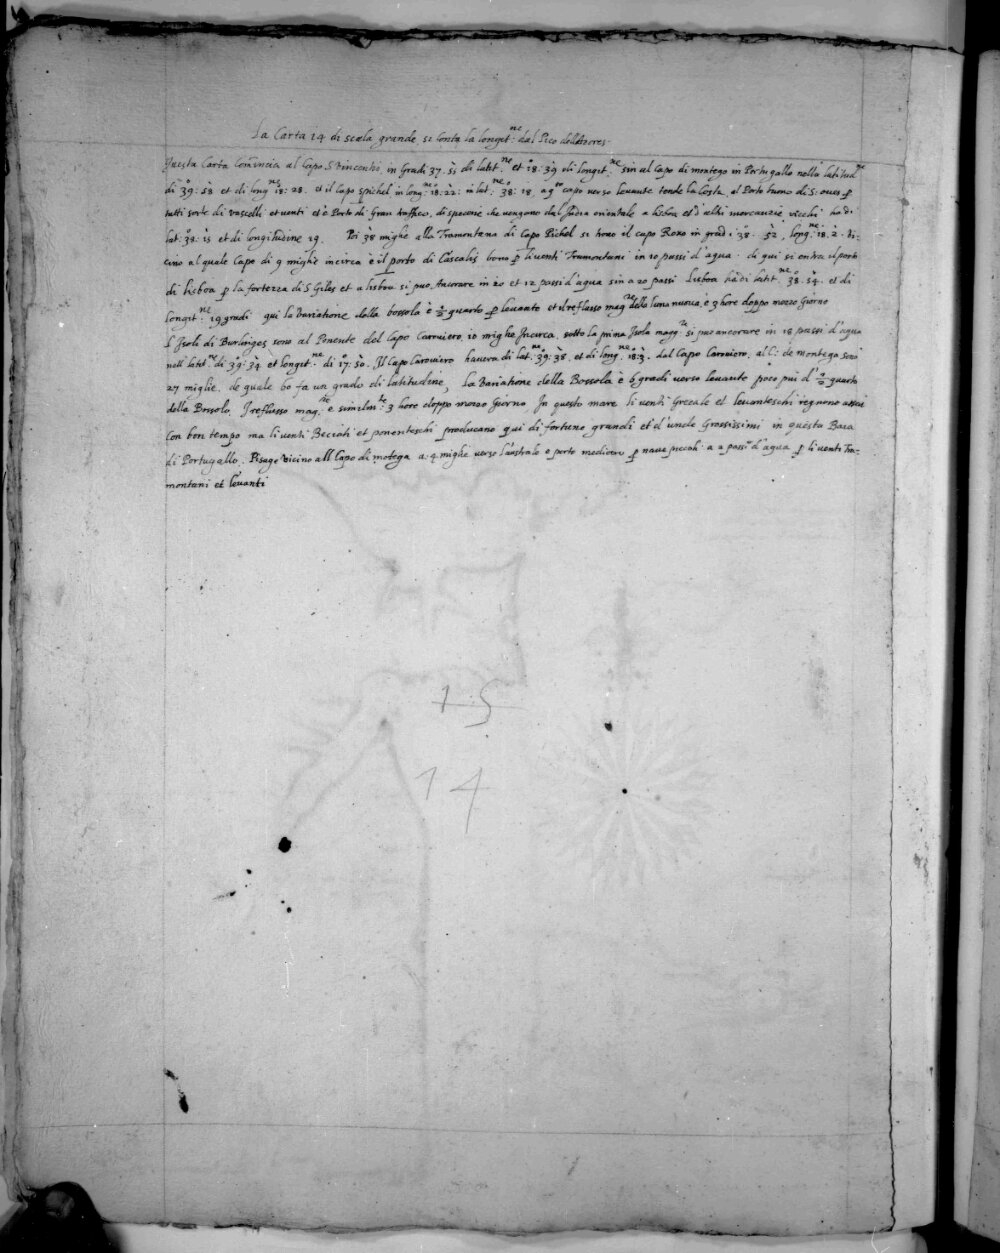 La Carta 14 di scala grande si conta la longit.ne dal Pico dell'Azores
Questa Carta Comincia al Capo S Vincentio in Gradi 37. 51 di latit.ne et 18: 39 di longit.ne sin al Capo di montego in Portugallo nella latitud.ne
di 39: 58 et di long.ne 18: 28. et il Capo spichel in long.ne 18: 22: in lat.ne 38: 18. capo verso levante tende la Costa el Porto buono di S: ouves p
tutti sorte di vascelli et venti et è Porto di Gran traffico, di specerie che vengono dal India orientale a lisboa et d'altri mercanzie ricchi ha di
lat: 39: 15 et di longitudine 19. Poi 38 miglie alla Tramontana di Capo Pichel si trovo il capo Roxo in gradi 38. 52, long.ne 18. 2. vi:
cino al quale Capo di 9 miglie incirca è il porto di Cascalis bono p li venti Tramontani in 10 passi d'aqua. di qui si entra il porto
di lisboa p la fortezza di S Giles et a lisboa si puo Ancorare in 10 et 12 passi d'aqua sin a 20 passi Lisboa ha di latit.ne 38. 54. et di
longit.ne 19 gradi qui la Variatione della bossola è 1/2 quarto p levante et il reflusso mag.re della luna nuova è 3 hore doppo mezzo Giorno
L'Isole di Burlinges sono al Ponente del Capo Carvoiero 10 miglie Incirca sotto la prima Isola magg:re si puo ancorare in 18 passi d'aqua
nell latit.ne di 39: 34 et longit.ne di 17. 50. Il Capo Carvoiero havera di lat.ne 39: 38. et di long.ne 18: 3. dal Capo Carvoiero al C: de montego sono
27 miglie. de quale 60 fa un grado di latitudine, la Variatione della Bossola è 6 gradi verso levante poco piu d'1/2 quarto
della Bossolo. Il reflusso mag.re è similm.te 3 hore doppo mezzo Giorno. In questo mare li venti Grecale et levanteschi regnono assai
con bon tempo ma li venti et ponenteschi producano qui di fortune grandi et d'unde Grossissimi in questa Baia
di Portugallo. Pisage vicino all Capo di motega a: 4 miglie verso l'australe e porto mediocre p nave piccoli a 2 passi d'aqua p li venti Tra-
montani et levanti
15
14